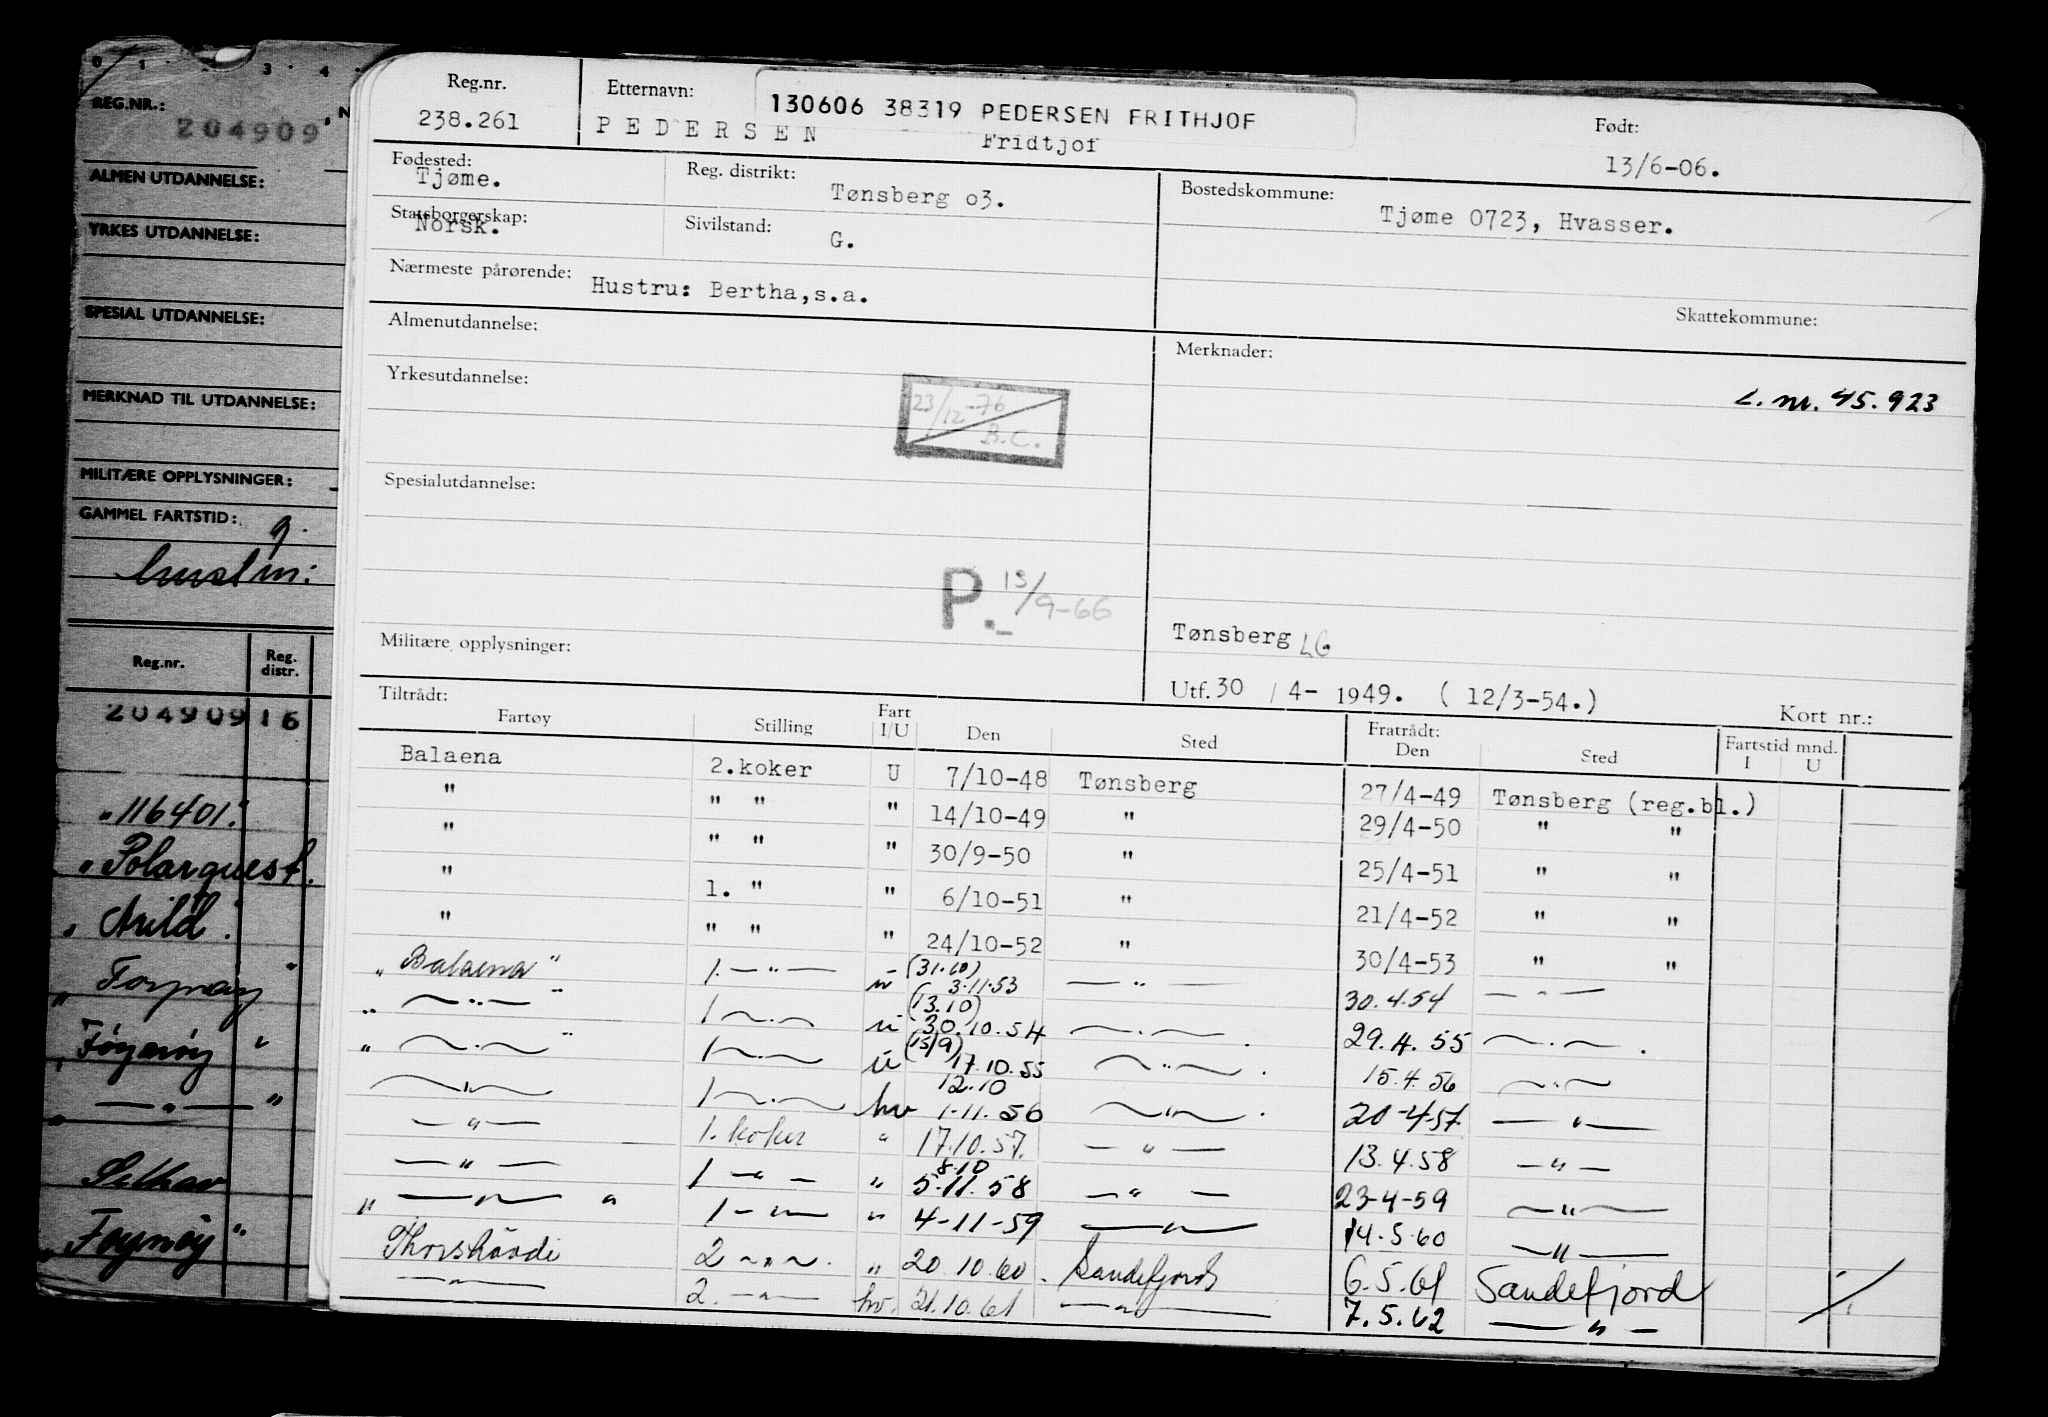 0 1 2 3 4
REG.NR.:
204909
ALMEN UTDANNELSE:
YRKES UTDANNELSE:
SPESIAL UTDANNELSE:
MERKNAD TIL UTDANNELSE:
MILITÆRE OPPLYSNINGER:
GAMMEL FARTSTID: g.
Reg.nr. Reg. distr.
204909 16
"116401".
"Polarquest.
" Arild".
Føynøy "
— " — "
Føynøy"
Reg.nr.
238.261
Etternavn:
130606 38319 PEDERSEN FRITHJOF
PEDERSEN Fridtjof
Født:
13/6-06.
Fødested:
Tjøme.
Reg. distrikt:
Tønsberg o3.
Bostedskommune:
Tjøme 0723, Hvasser.
Statsborgerskap:
Norsk.
Sivilstand:
G.
Nærmeste pårørende:
Hustru: Bertha,s.a.
Skattekommune:
Almenutdannelse:
Merknader:
L. nr. 45.923
Yrkesutdannelse:
23/12-76
B.C.
Spesialutdannelse:
P. 13/9-66
Militære opplysninger:
Tønsberg LG
Utf. 30 / 4- 1949. ( 12/3-54.)
Kort nr.:
Tiltrådt: Fartøy Stilling Fart I/U Den Sted Fratrådt: Den Sted Fartstid mnd. I U
Balaena 2.koker U 7/10-48 Tønsberg 27/4-49 Tønsberg (reg.bl.)
" " " " 14/10-49 " 29/4-50 " "
" " " " 30/9-50 " 25/4-51 " "
" 1. " " 6/10-51 " 21/4-52 " "
" " " " 24/10-52 " 30/4-53 " "
"Balaena" 1. — " — u (31.10) 3.11.53 — " — 30.4.54 — " —
" — " — " 1 — " — u (13.10) 30.10.54 — " — . 29.4.55 — " — .
" — " — " 1 — " — u (15/9) 17.10.55 — " — . 15.4.56 — " —
— " — 1 — " — hv 12.10 1.11.56 — " — . 20-4-57. — " —
— " — 1. koker " 17.10.57. — " — 13.4.58 — " —
— " — 1 — " — " 8.10 5.11.58 — " — 23-4-59 — " —
" — " — " 1 — " — " 4-11-59 — " — 14.5.60 — " —
Thorshövdi 2 — " — . " 20.10.60. Sandefjord 6.5.61 Sandefjord
— " — 2. — " — hv. 21.10.61 — " — 7.5.62 — " —